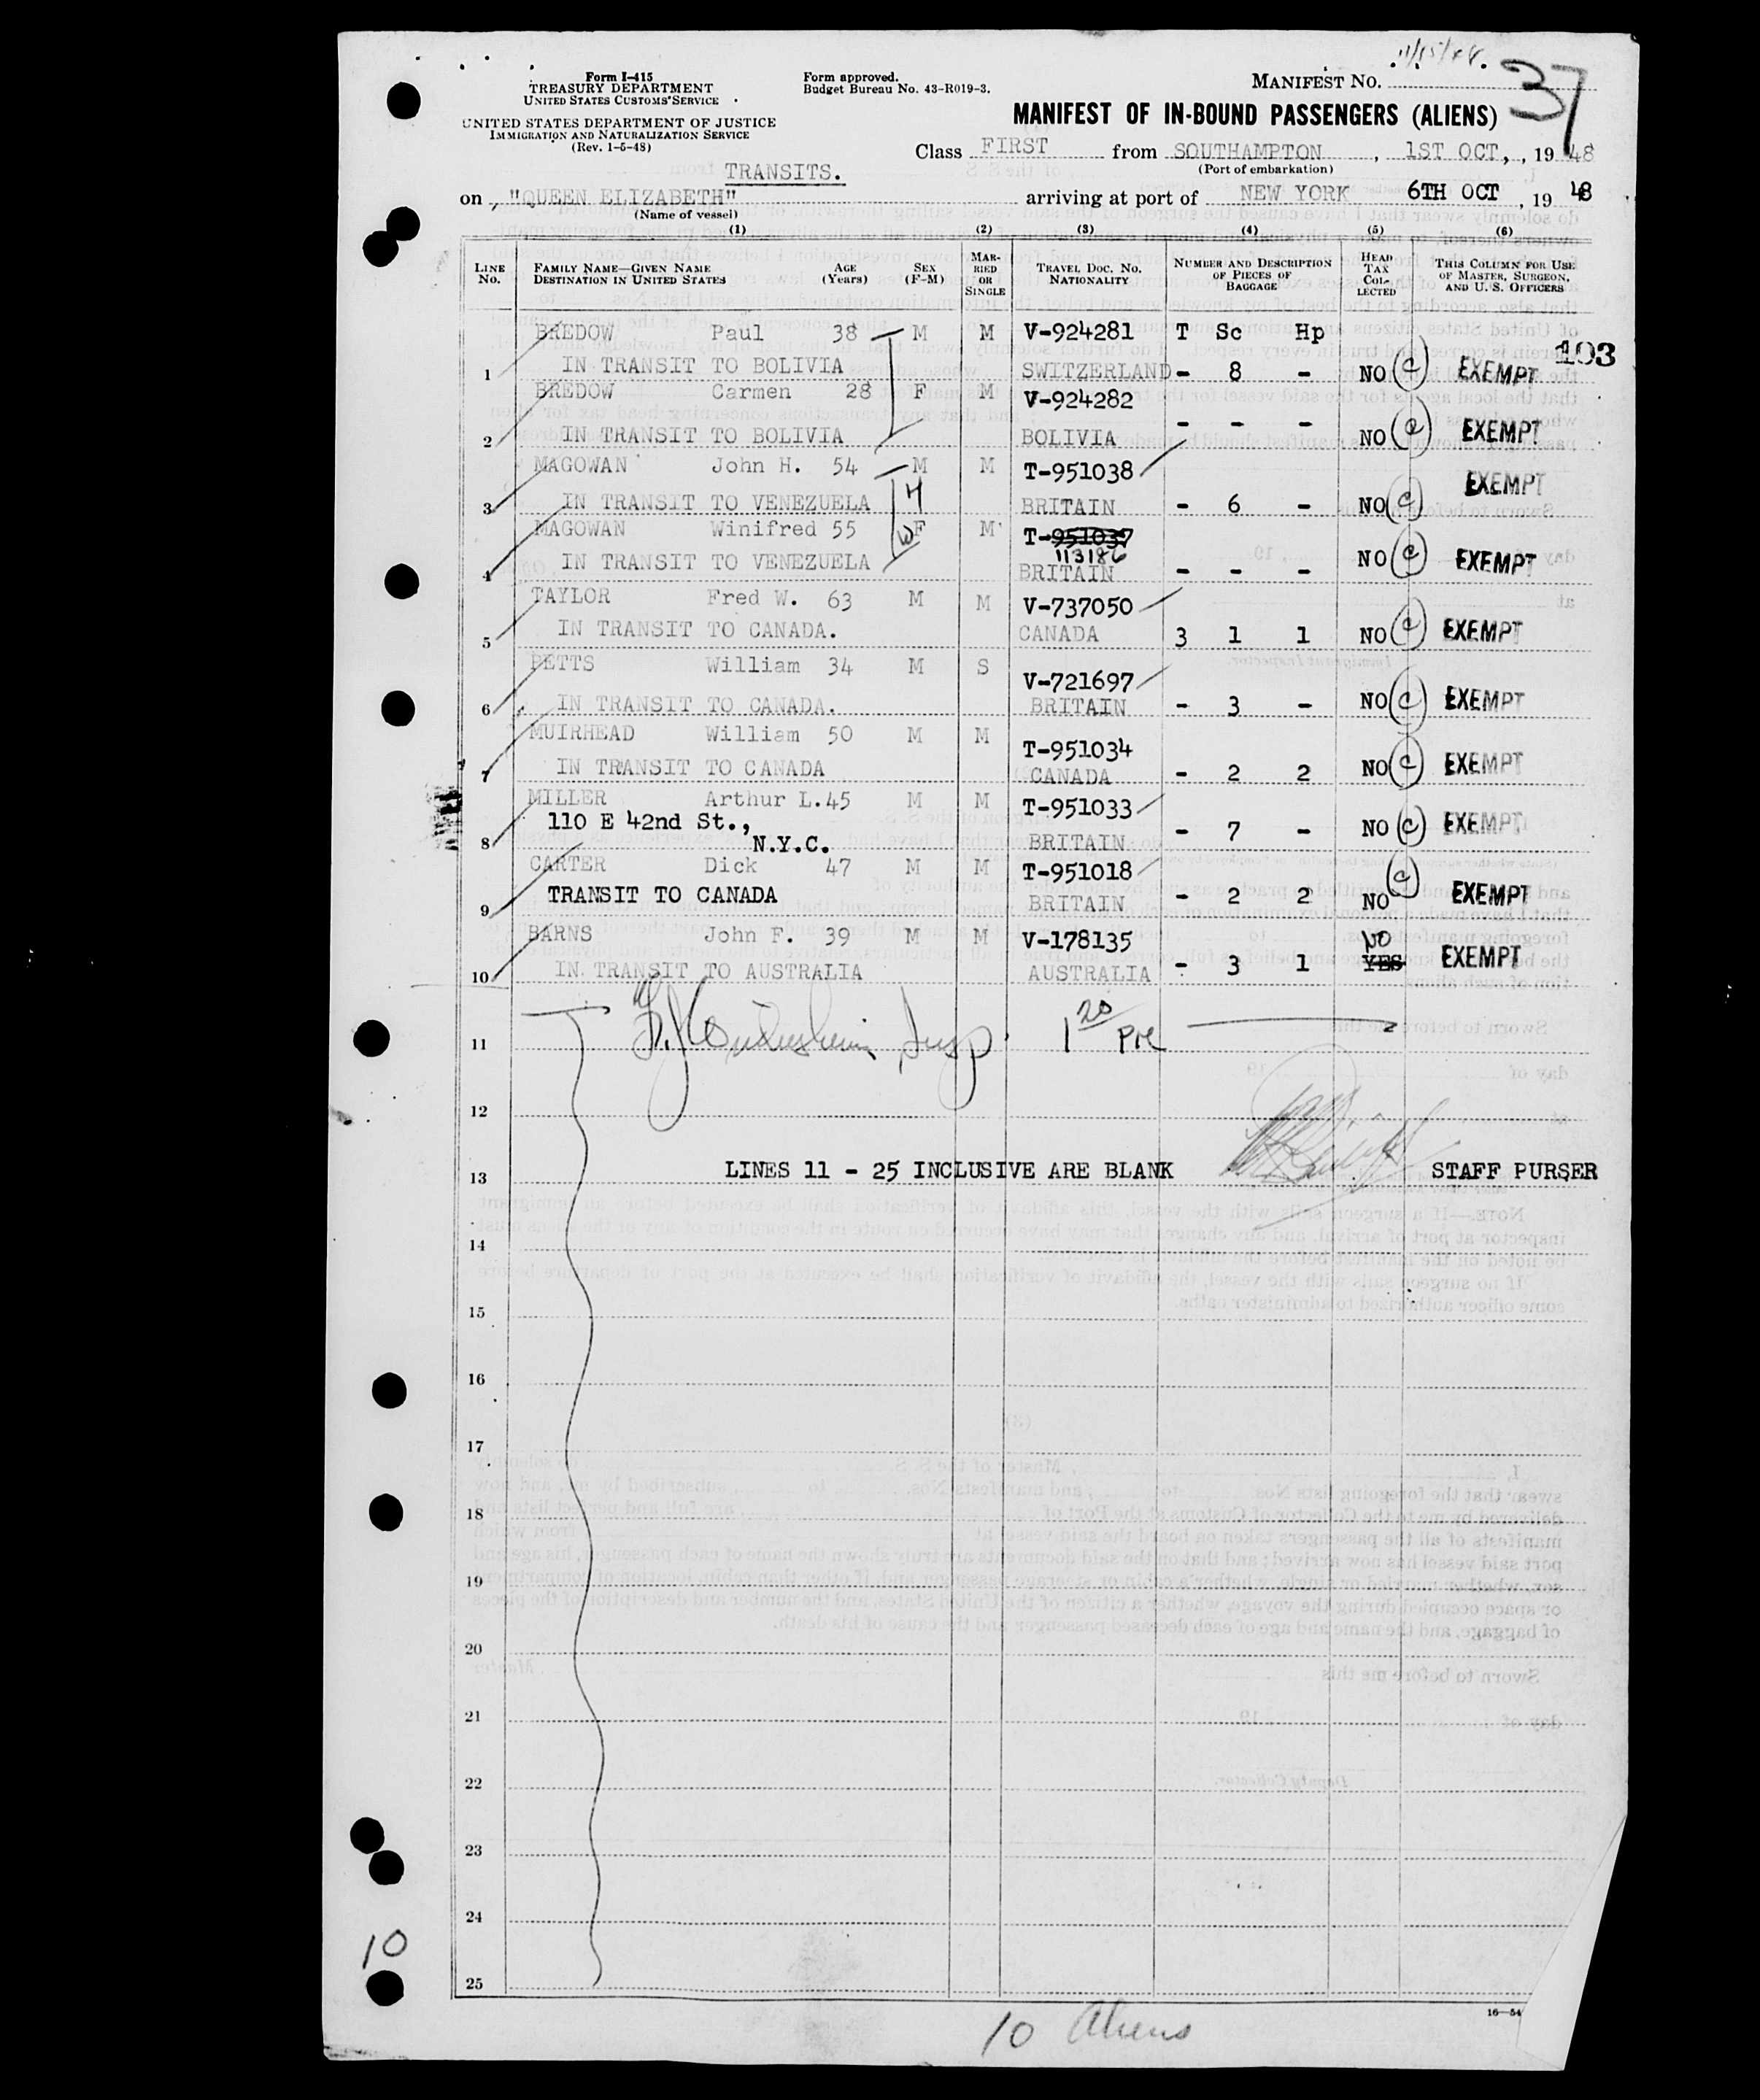 11/15/48.
Form I-415
TREASURY DEPARTMENT
UNITED STATES CUSTOMS SERVICE
UNITED STATES DEPARTMENT OF JUSTICE
IMMIGRATION AND NATURALIZATION SERVICE
(Rev. 1-5-48)
Form approved.
Budget Bureau No. 43-R019-3.
MANIFEST NO. 37
MANIFEST OF IN-BOUND PASSENGERS (ALIENS)
Class FIRST from SOUTHAMPTON, 1ST OCT., 19 48
(Port of embarkation)
TRANSITS.
on "QUEEN ELIZABETH" arriving at port of NEW YORK 6TH OCT, 19 48
(Name of vessel)
(1) (2) (3) (4) (5) (6)
LINE No. FAMILY NAME—GIVEN NAME DESTINATION IN UNITED STATES AGE (Years) SEX (F-M) MARRIED OR SINGLE TRAVEL DOC. NO. NATIONALITY NUMBER AND DESCRIPTION OF PIECES OF BAGGAGE HEAD TAX COLLECTED THIS COLUMN FOR USE OF MASTER, SURGEON, AND U. S. OFFICERS
BREDOW Paul 38 M M V-924281 T Sc Hp
103
1 IN TRANSIT TO BOLIVIA SWITZERLAND - 8 - NO (C) EXEMPT
BREDOW Carmen 28 F M V-924282
2 IN TRANSIT TO BOLIVIA BOLIVIA - - - NO (C) EXEMPT
MAGOWAN John H. 54 M M T-951038 EXEMPT
3 IN TRANSIT TO VENEZUELA H BRITAIN - 6 - NO (C)
MAGOWAN Winifred 55 W F M T-951037
113186
4 IN TRANSIT TO VENEZUELA BRITAIN - - - NO (C) EXEMPT
TAYLOR Fred W. 63 M M V-737050
5 IN TRANSIT TO CANADA. CANADA 3 1 1 NO (C) EXEMPT
BETTS William 34 M S V-721697
6 IN TRANSIT TO CANADA. BRITAIN - 3 - NO (C) EXEMPT
MUIRHEAD William 50 M M T-951034
7 IN TRANSIT TO CANADA CANADA - 2 2 NO (C) EXEMPT
MILLER Arthur L. 45 M M T-951033
110 E 42nd St.,
8 N.Y.C. BRITAIN - 7 - NO (C) EXEMPT
CARTER Dick 47 M M T-951018
9 TRANSIT TO CANADA BRITAIN - 2 2 NO (C) EXEMPT
BARNS John F. 39 M M V-178135 NO
10 IN TRANSIT TO AUSTRALIA AUSTRALIA - 3 1 YES EXEMPT
11 Insp. 1 20 PM
12
13 LINES 11 - 25 INCLUSIVE ARE BLANK STAFF PURSER
14
15
16
17
18
19
20
21
22
23
24
25
10
16—54
10 Aliens